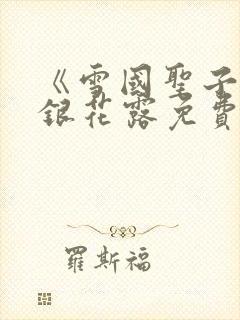 《雪國聖子
銀花露免費
羅斯福